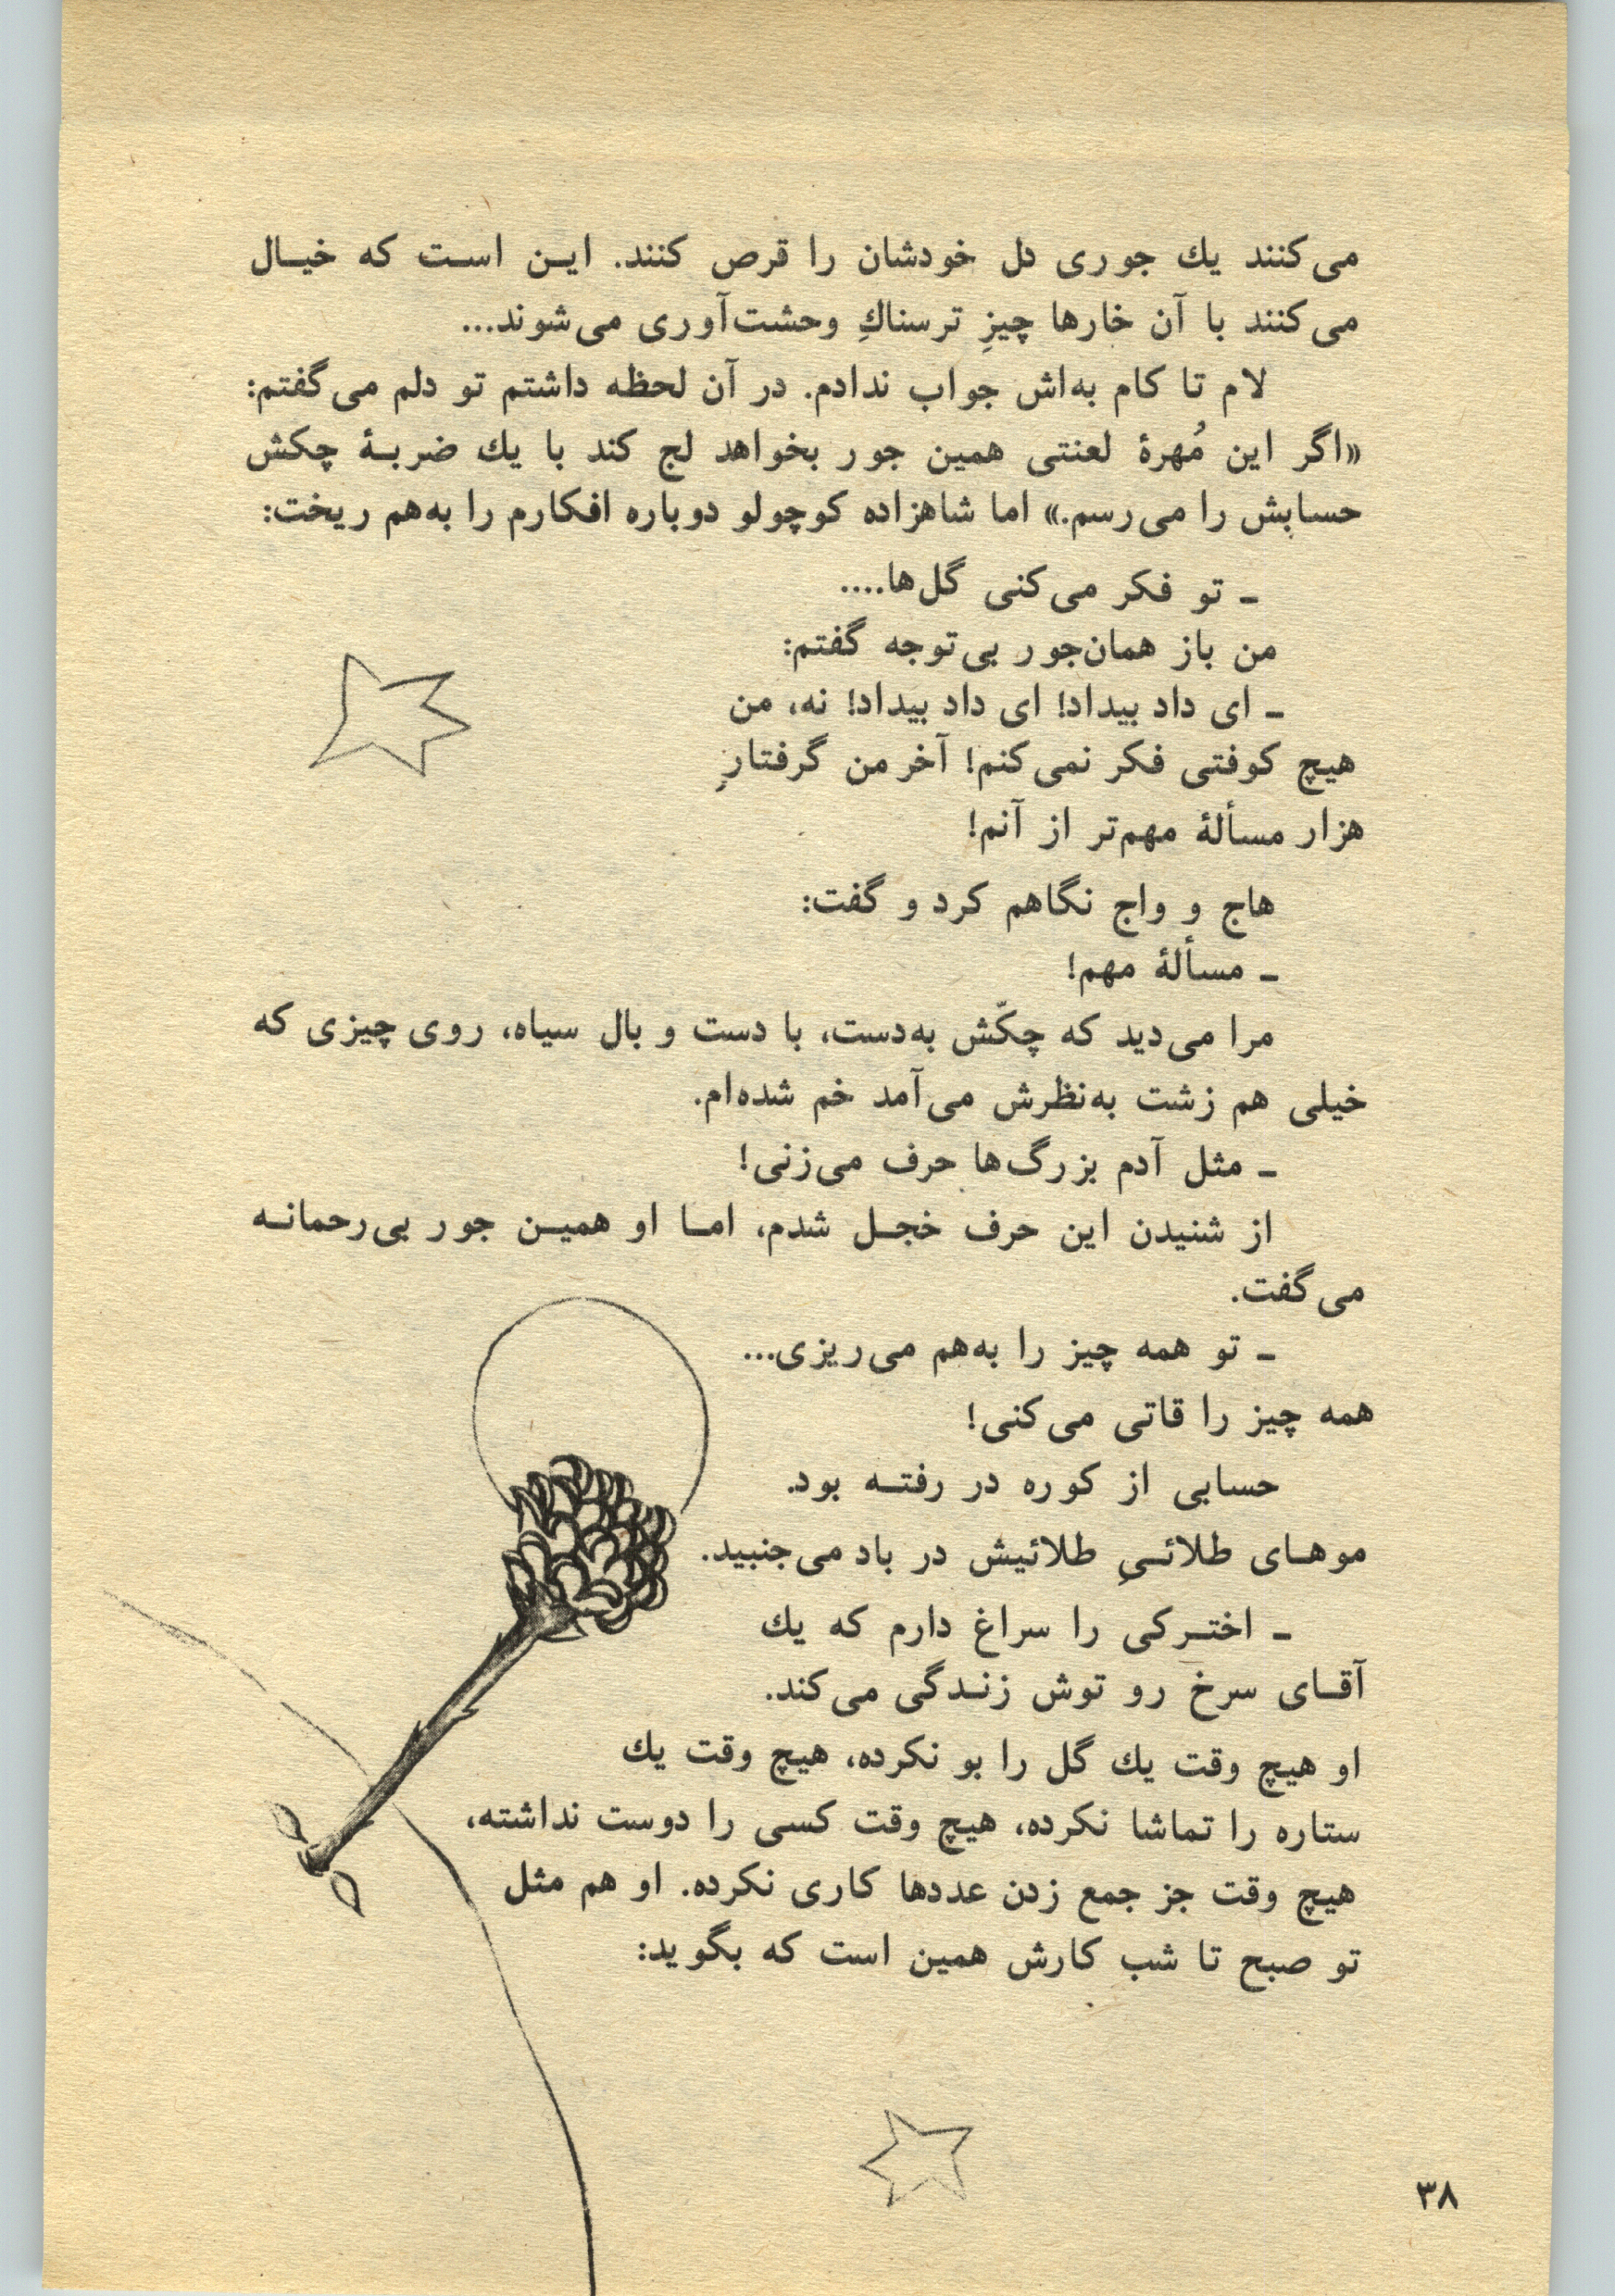 می‌کنند یك جوری دل خودشان را قرص کنند. ایـن اسـت که خیـال
می‌کنند با آن خارها چیزِ ترسناكِ وحشت‌آوری می‌شوند...
لام تا کام به‌اش جواب ندادم. در آن لحظه داشتم تو دلم می‌گفتم:
«اگر این مُهرهٔ لعنتی همین جور بخواهد لج کند با یك ضربـهٔ چکش
حسابش را می‌رسم.» اما شاهزاده کوچولو دوباره افکارم را به‌هم ریخت:
ـ تو فکر می‌کنی گل‌ها....
من باز همان‌جور بی‌توجه گفتم:
ـ ای داد بیداد! ای داد بیداد! نه، من
هیچ کوفتی فکر نمی‌کنم! آخر من گرفتارِ
هزار مسألهٔ مهم‌تر از آنم!
هاج و واج نگاهم کرد و گفت:
ـ مسألهٔ مهم!
مرا می‌دید که چکّش به‌دست، با دست و بال سیاه، روی چیزی که
خیلی هم زشت به‌نظرش می‌آمد خم شده‌ام.
ـ مثل آدم بزرگ‌ها حرف می‌زنی!
از شنیدن این حرف خجـل شدم، امـا او همیـن جور بی‌رحمانـه
می‌گفت.
ـ تو همه چیز را به‌هم می‌ریزی...
همه چیز را قاتی می‌کنی!
حسابی از کوره در رفتـه بود.
موهـای طلائـیِ طلائیش در باد می‌جنبید.
ـ اختـرکی را سراغ دارم که یك
آقـای سرخ رو توش زنـدگی می‌کند.
او هیچ وقت یك گل را بو نکرده، هیچ وقت یك
ستاره را تماشا نکرده، هیچ وقت کسی را دوست نداشته،
هیچ وقت جز جمع زدن عددها کاری نکرده. او هم مثل
تو صبح تا شب کارش همین است که بگوید:
۳۸